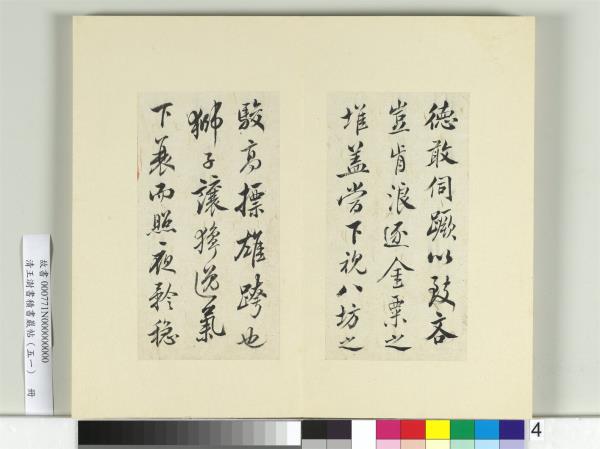 德敢伺蹶以致吝
豈肯浪逐金粟之
堆盖嘗下視八坊之
駿高標雄跨也
獅子讓獰逸氣
下衰而照夜矜穩
故書000771N000000000
清王澍書積書巖帖(五一) 冊
4